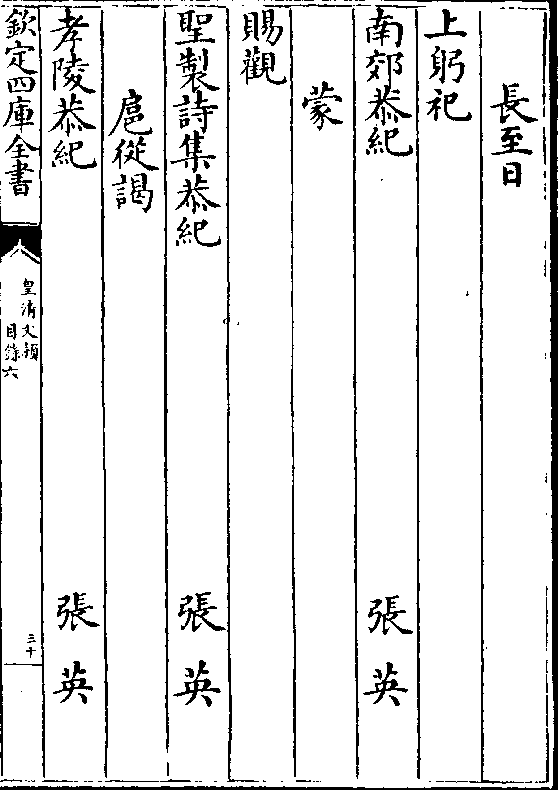 長至日
上躬祀
南郊恭紀 張英
蒙
賜觀
聖製詩集恭紀 張英
扈從謁
孝陵恭紀 張英
欽定四庫全書
皇清文穎
目錄六
三十